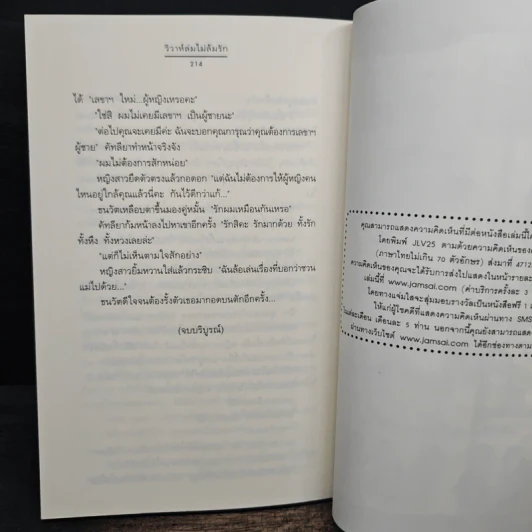 วิวาห์ล่มไม่ล้มรัก
314
ได้ "เลขาฯ ใหม่...ผู้หญิงเหรอคะ"
"ใช่สิ ผมไม่เคยมีเลขาฯ เป็นผู้ชายนะ"
"ต่อไปคุณจะเคยมีค่ะ ฉันจะบอกคุณการุณว่าคุณต้องการเลขาฯ
ผู้ชาย" คัทลียาทำหน้าจริงจัง
"ผมไม่ต้องการสักหน่อย"
หญิงสาวยืดตัวตรงแล้วกอดอก "แต่ฉันไม่ต้องการให้ผู้หญิงคน
ไหนอยู่ใกล้คุณแล้วนี่คะ กันไว้ดีกว่าแก้..."
ธนวัตเหลือบตาขึ้นมองคู่หมั้น "รักผมเหมือนกันเหรอ"
คัทลียาก้มหน้าลงไปหาเขาอีกครั้ง "รักสิคะ รักมากด้วย ทั้งรัก
ทั้งหึง ทั้งหวงเลยล่ะ"
"แต่ก็ไม่เห็นตามใจสักอย่าง"
หญิงสาวยิ้มหวานใส่แล้วกระซิบ "ฉันล้อเล่นเรื่องที่บอกว่าชวน
แม่ไปด้วย..."
ธนวัตดีใจจนต้องรั้งตัวเธอมากอดบนตักอีกครั้ง...
(จบบริบูรณ์)
คุณสามารถแสดงความคิดเห็นที่มีต่อหนังสือเล่มนี้ได้
โดยพิมพ์ JLV25 ตามด้วยความคิดเห็นของ
(ภาษาไทยไม่เกิน 70 ตัวอักษร) ส่งมาที่ 4712
ความคิดเห็นของคุณจะได้รับการส่งไปแสดงในหน้ารายละ
เล่มนี้ที่ www.jamsai.com (ค่าบริการครั้งละ 3
โดยทางแจ่มใสจะสุ่มมอบรางวัลเป็นหนังสือฟรี 1
ให้แก่ผู้โชคดีที่แสดงความคิดเห็นผ่านทาง SMS
ในแต่ละเดือน เดือนละ 5 ท่าน นอกจากนี้คุณยังสามารถแสดง
ผ่านทางเว็บไซต์ www.jamsai.com ได้อีกช่องทางตาม